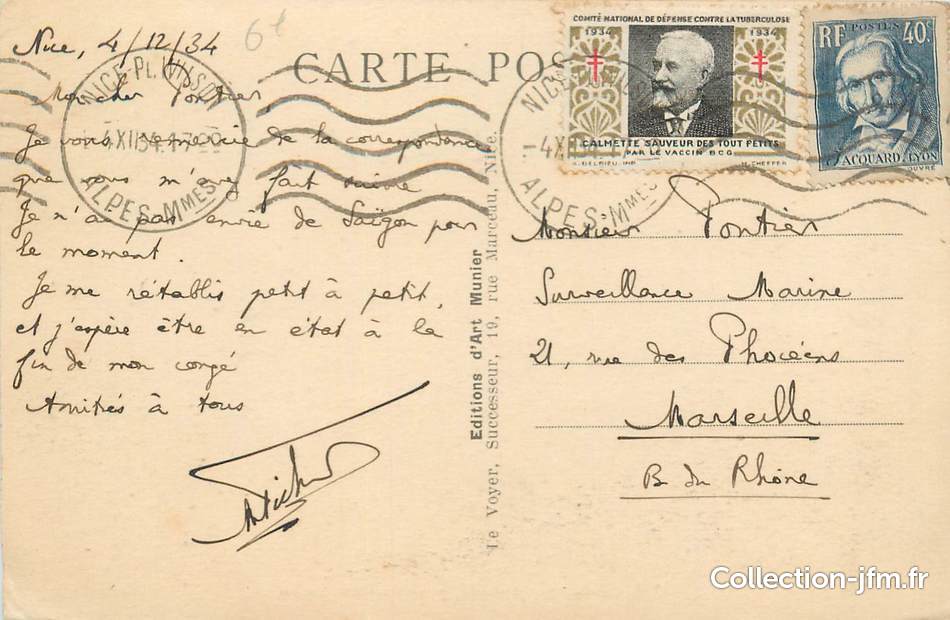 Nice, 4/12/34
6€
CARTE POS
Mon cher Pontier,
Je vous remercie de la correspondance
que vous m'avez fait suivre
Je n'ai pas envie de Saïgon pour
le moment.
Je me rétablis petit à petit,
et j'espère être en état à la
fin de mon congé
Amitiés à tous
NICE PL. WILSON
4 XII 34
ALPES-MMES
Editions d'Art Munier
Le Voyer, Successeur, 19, rue Marceau, Nice.
COMITÉ NATIONAL DE DÉFENSE CONTRE LA TUBERCULOSE
1934 1934
CALMETTE SAUVEUR DES TOUT PETITS
PAR LE VACCIN BCG
H. CHEFFER
POSTES
RF 40c
JACQUARD. LYON
OUVRÉ
NICE
4 XII
ALPES-MMES
Monsieur Pontier
Surveillance Marine
21, rue des Phocéens
Marseille
B. du Rhône
Collection-jfm.fr